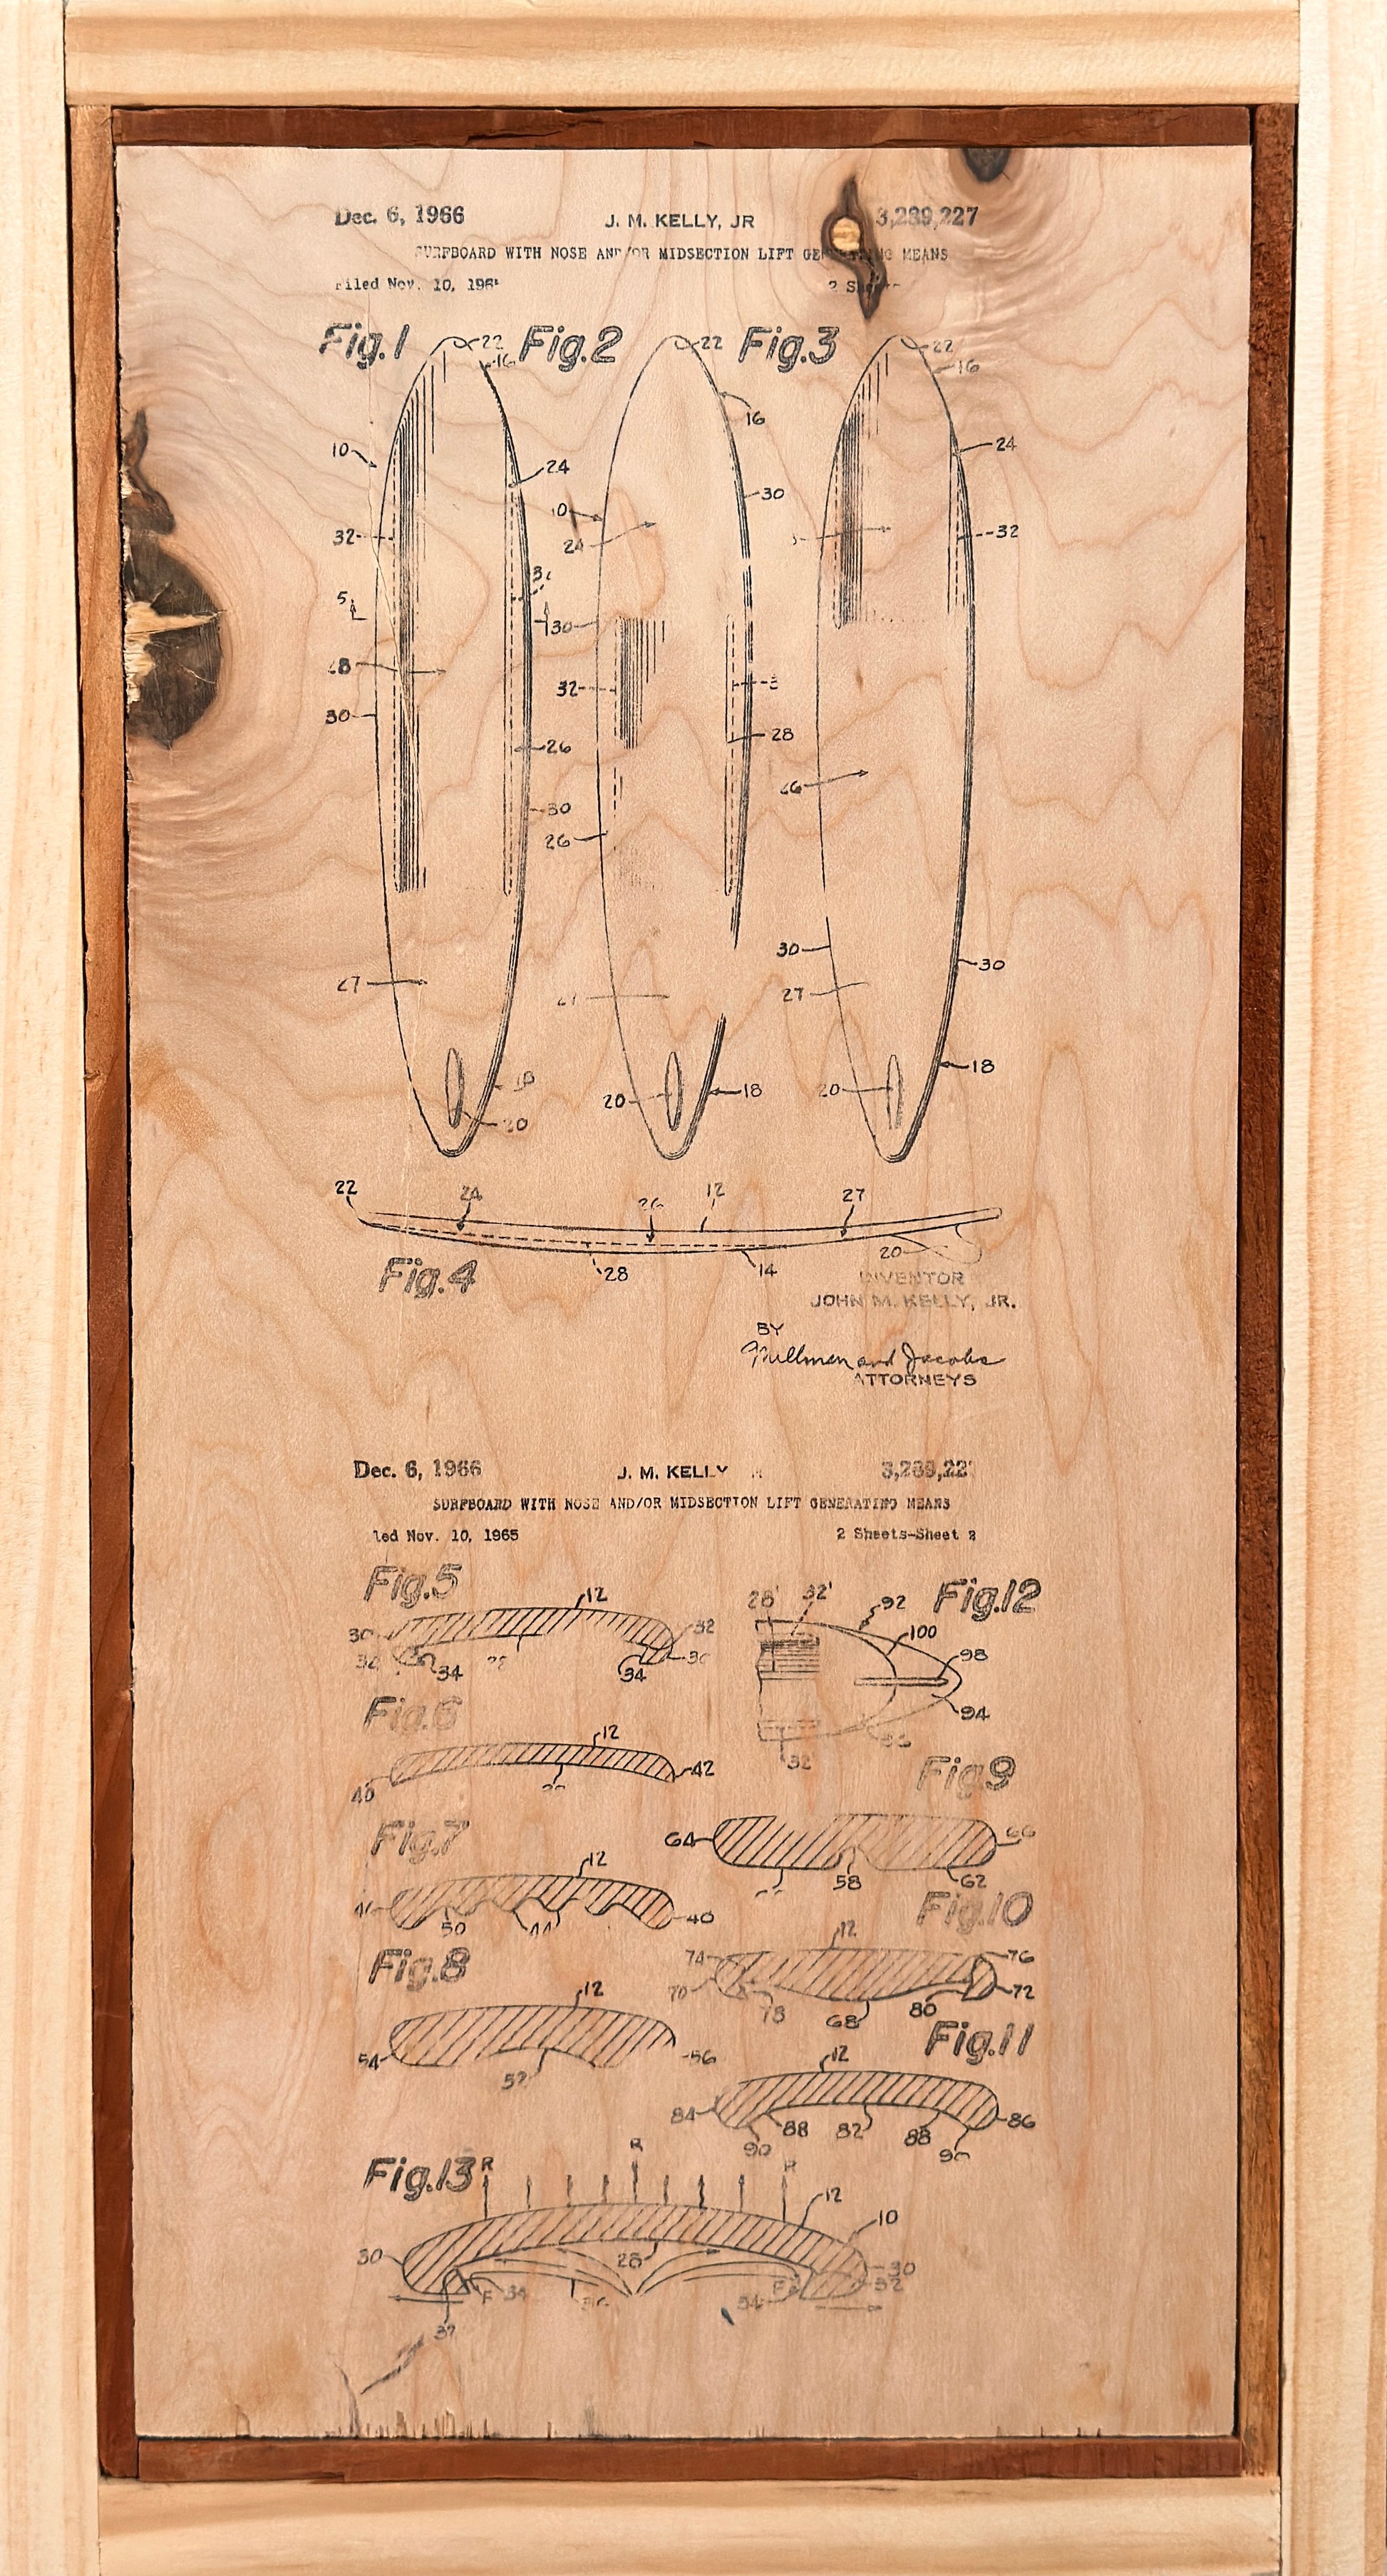 Dec. 6, 1966 J. M. KELLY, JR 3,289,227
SURFBOARD WITH NOSE AND/OR MIDSECTION LIFT MEANS
Filed Nov. 10, 2
Fig.1 22 Fig.2 22 Fig.3 22
16 16
16
10 24 24
30
10
32 24 32
5
30
32
30 28
26
30
26
30 30
27
27
18
20 18 20
20
22 24 26 12 27
20
28 14
Fig.4
INVENTOR
JOHN M. KELLY, JR.
BY
Millman and Jacobs
ATTORNEYS
Dec. 6, 1966 J. M. KELLY
SURFBOARD WITH NOSE AND/OR MIDSECTION LIFT GENERATING MEANS
Nov. 10, 1965 2 Sheets-Sheet 2
Fig.5 Fig.12
12 28' 32' 92
30 32 100
34 34 98
94
Fig.6
12
32
40 42
Fig.9
Fig.7
12 64 66
58 62
50 44 40
Fig.10
Fig.8 12
74 76
70 72
12 78 68 80
Fig.11
54 56 12
52
84 86
88 82 88
90 90
Fig.13 R R R
12
10
30 28 30
32
F 34 34
32